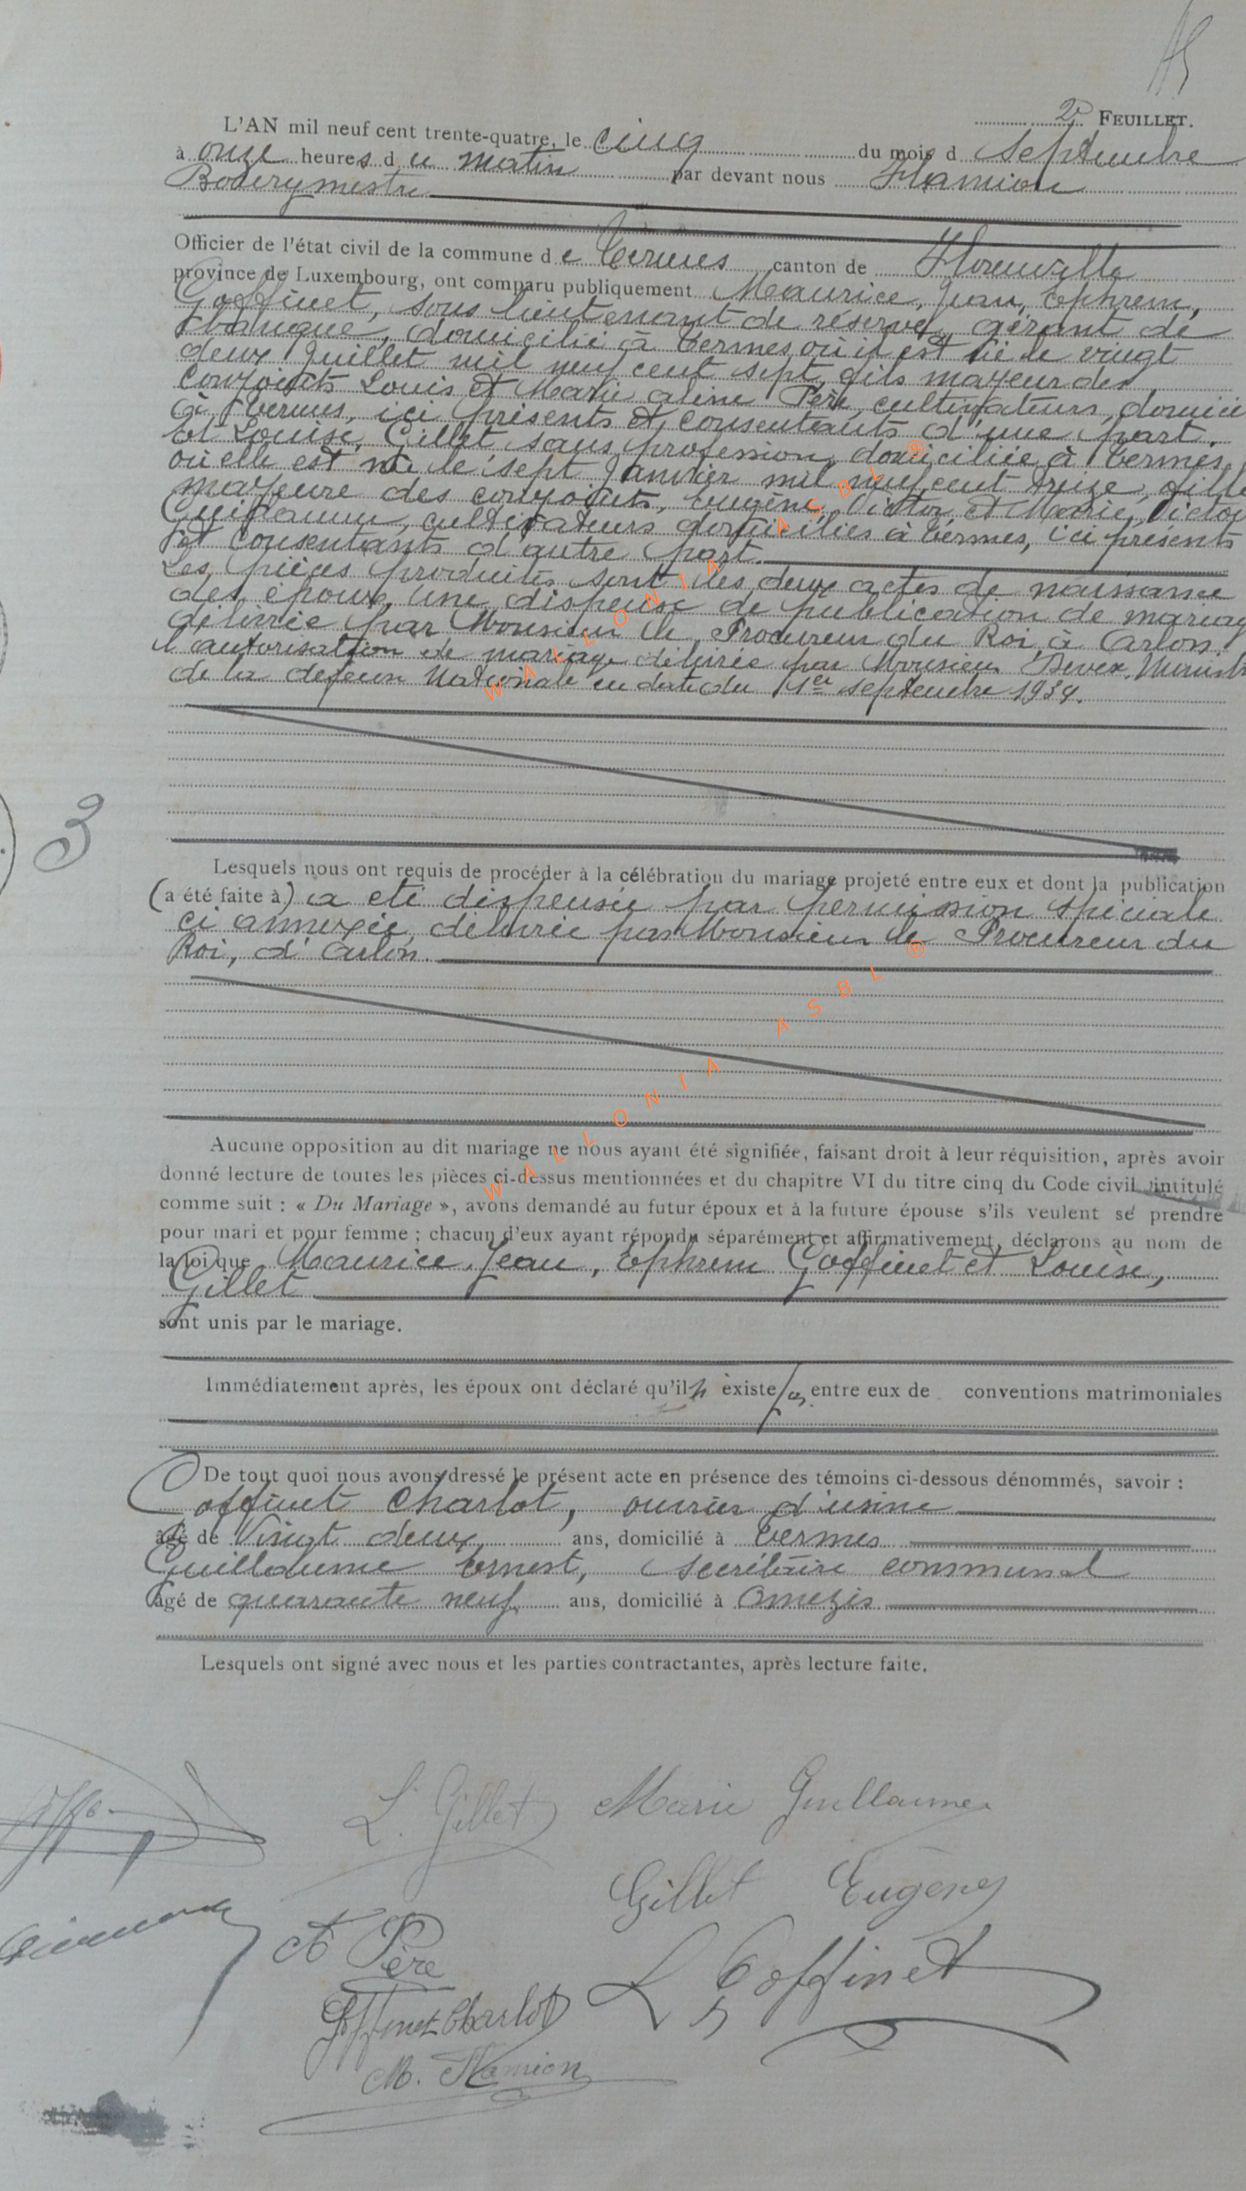 2e FEUILLET.
L'AN mil neuf cent trente-quatre, le cinq du mois d septembre
à onze heures du matin par devant nous Hamion
Bourgmestre
Officier de l'état civil de la commune de Termes canton de Florenville
province de Luxembourg, ont comparu publiquement Maurice, Jean, Ephrem,
Goffinet, sous lieutenant de réserve, gérant de
banque, domicilié à Termes où il est né le vingt
deux Juillet mil neuf cent sept, fils majeur des
conjoints Louis et Marie Aline Père, cultivateurs, domici
à Termes, ici présents et consentants d'une part.
Et Louise, Gillet sans profession, domiciliée à Termes,
où elle est née le sept Janvier mil neuf cent treize, fille
majeure des conjoints, Eugène, Victor et Marie, Victor
Guillaume, cultivateurs domiciliés à Termes, ici présents
et consentants d'autre part.
Les pièces produites sont les deux actes de naissance
des époux, une dispense de publication de mariage
délivrée par Monsieur le Procureur du Roi à Arlon,
l'autorisation de mariage délivrée par Monsieur Devèze, Ministr
de la défense Nationale en date du 1er septembre 1934.
3
Lesquels nous ont requis de procéder à la célébration du mariage projeté entre eux et dont la publication
(a été faite à) a été dispensée par permission spéciale
ci annexée, délivrée par Monsieur le Procureur du
Roi, d'Arlon.
Aucune opposition au dit mariage ne nous ayant été signifiée, faisant droit à leur réquisition, après avoir
donné lecture de toutes les pièces ci-dessus mentionnées et du chapitre VI du titre cinq du Code civil intitulé
comme suit : « Du Mariage », avons demandé au futur époux et à la future épouse s'ils veulent se prendre
pour mari et pour femme ; chacun d'eux ayant répondu séparément et affirmativement, déclarons au nom de
la loi que Maurice, Jean, Ephrem Goffinet et Louise,
Gillet
sont unis par le mariage.
Immédiatement après, les époux ont déclaré qu'il n'existe pas entre eux de conventions matrimoniales
De tout quoi nous avons dressé le présent acte en présence des témoins ci-dessous dénommés, savoir :
Goffinet Charlot, ouvrier d'usine
âgé de Vingt deux ans, domicilié à Termes
Guillaume Ernest, secrétaire communal
âgé de quarante neuf ans, domicilié à Osmezis
Lesquels ont signé avec nous et les parties contractantes, après lecture faite.
L. Gillet Marie Guillaume
Gillet Eugène
A Père
L Goffinet
Goffinet Charlot
M. Hamion
WALLONIA ASBL ®
WALLONIA ASBL ®